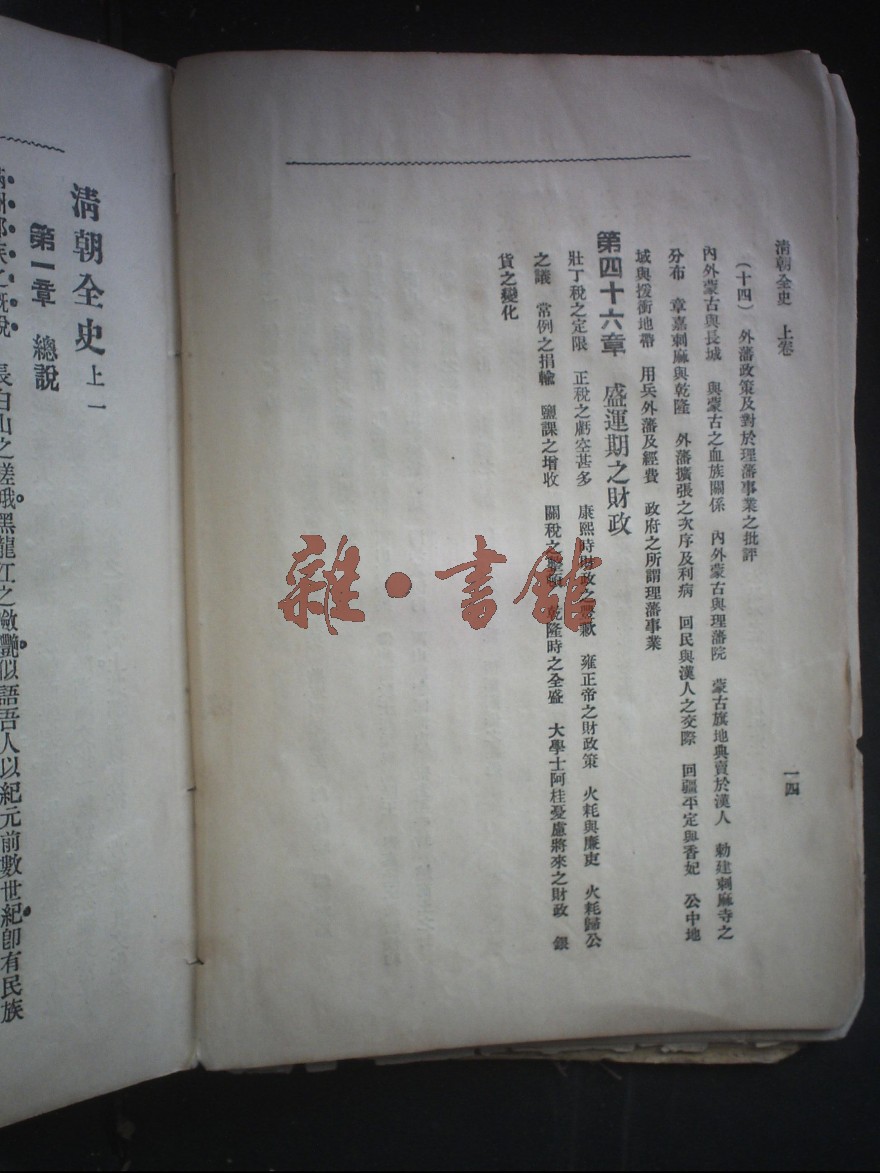 清朝全史　上卷
一四
(十四)　外藩政策及對於理藩事業之批評
內外蒙古與長城　與蒙古之血族關係　內外蒙古與理藩院　蒙古旗地典賣於漢人　勅建剌麻寺之
分布　章嘉剌麻與乾隆　外藩擴張之次序及利病　回民與漢人之交際　回疆平定與香妃　公中地
域與援衝地帶　用兵外藩及經費　政府之所謂理藩事業
第四十六章　盛運期之財政
壯丁稅之定限　正稅之虧空甚多　康熙時財政之歉　雍正帝之財政策　火耗與廉吏　火耗歸公
之議　常例之捐輸　鹽課之增收　關稅之整頓　乾隆時之全盛　大學士阿桂憂慮將來之財政　銀
貨之變化
清朝全史　上一
第一章　總說
滿州部族之概說　長白山之嵯峨黑龍江之瀲灩似語吾人以紀元前數世紀卽有民族
雜·書館